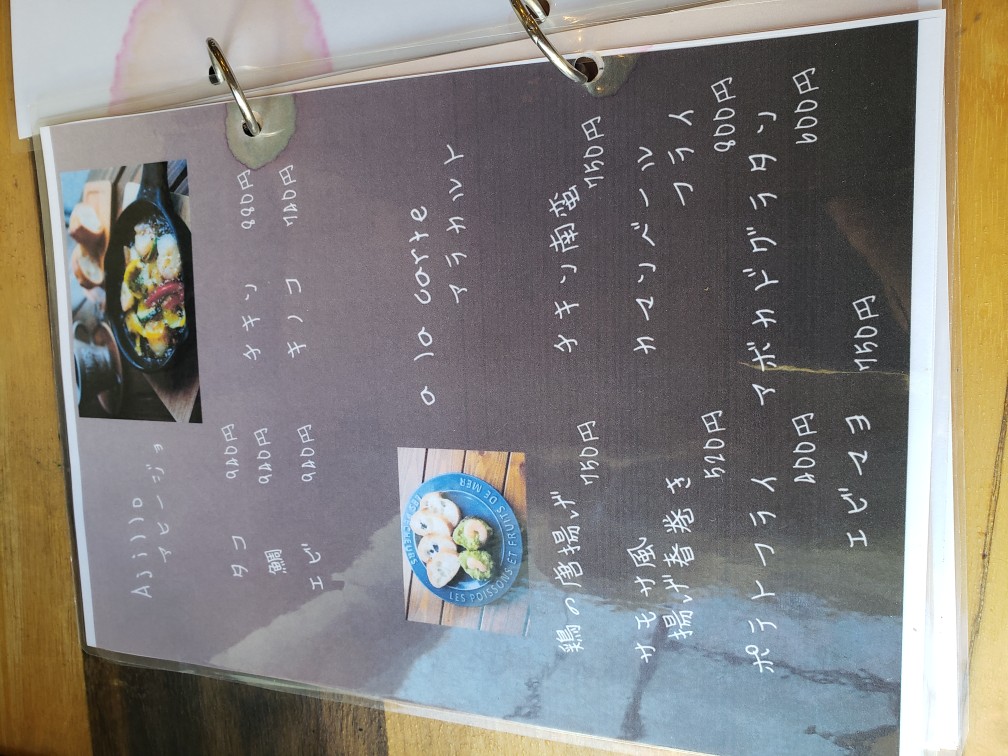 Ajillo
アヒージョ
タコ 940円
鯛 940円
エビ 940円
チキン 880円
キノコ 740円
a la carte
アラカルト
LES POISSONS ET FRUITS DE MER
鶏の唐揚げ 750円
チキン南蛮 750円
サモサ風
揚げ春巻き
520円
カマンベール
フライ
800円
ポテトフライ
400円
アボカドグラタン
600円
エビマヨ 750円